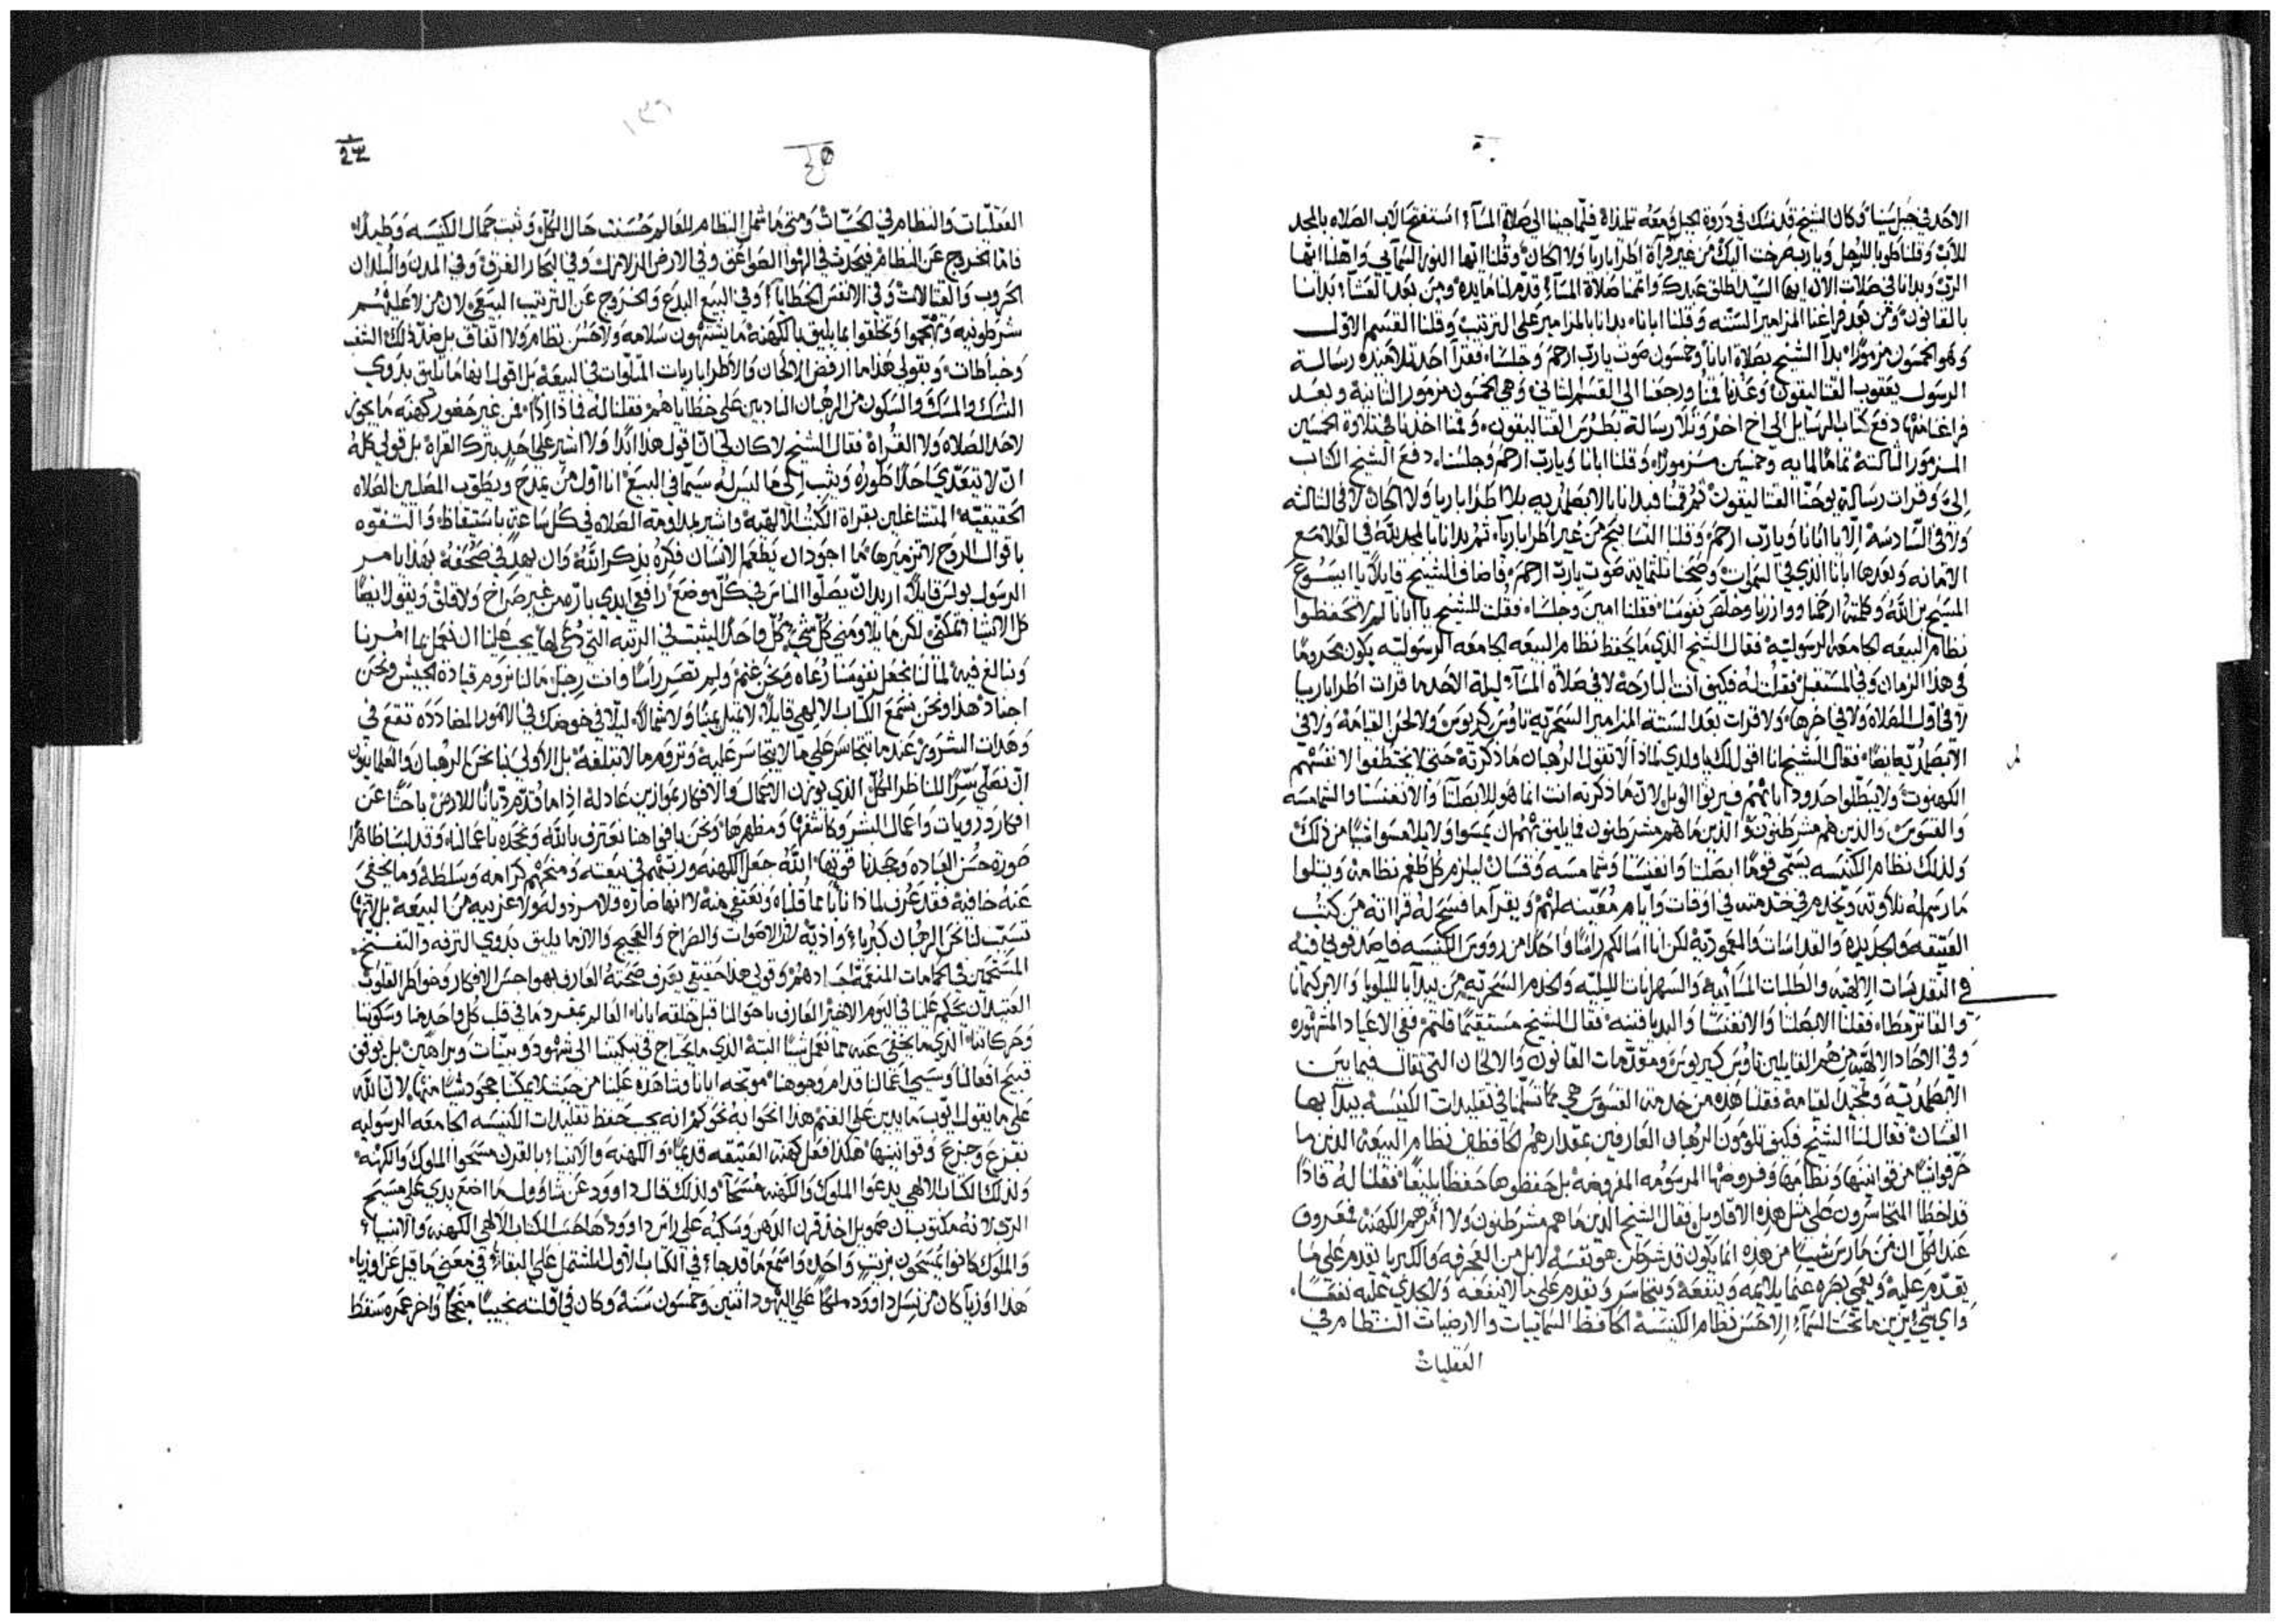 الاحد في جبل سينا وكان الشيخ قد نسك في دروة الجبل ومعه تلمذاه فلما جينا الى صلاة المسآء استفتح الاب الصلاه بالمجد
للاب وقلنا طوبا للرجل ويارب صرخت اليك من غير قرآة اطراباريا ولا الحان وقلنا ايها النور السمآيي واهلنا ايها
الرب وبدانا في صلات الان ايها السيد اطلق عبدك واتممنا صلاة المسآء قدم لنا مايده ومن بعد العشآء بدانا
بالقانون ومن بعد فراغنا المزامير الستنه وقلنا ابانا بدانا بالمزامير على الترتيب وقلنا القسم الاول
وهو الخمسون مزمورًا بدآ الشيخ بصلاة ابانا وخمسون صوت يارب ارحم وجلسنا فقرآ احد تلاميذه رسالة
الرسول يعقوب القتاليقون وعدنا قمنا ورجعنا الى القسم الثاني وهي الخمسون مزمور الثانية وبعد
فراغنا منها دفع كتاب الرسايل الى اخ اخر وتلا رسالة بطرس القتاليقون وقمنا اخذنا في تلاوة الخمسين
المزمور الثالثة تمامًا لمايه وخمسين مزمورًا وقلنا ابانا ويارب ارحم وجلسنا دفع الشيخ الكتاب
الي وقرات رسالة يوحنا القتاليقون ثم قمنا فبدانا بالابصلمديه بلا اطراباريا ولا الحان لا في الثالثه
ولا في السادسة الا بابانا ويارب ارحم وقلنا التسابيح من غير اطراباريا ثم بدانا بالمجد لله في العلا مع
الامانه وبعدها ابانا الذي في السموات وصحنا ثلثمايه صوت يارب ارحم واضاف الشيخ قايلاً يا ايسوع
المسيح بن الله وكلمته ارحمنا ووازرنا وخلص نفوسنا فقلنا امين وجلسنا فقلت للشيخ يا ابانا لم لا تحفظوا
نظام البيعه الجامعه الرسوليه فقال الشيخ الذي ما يحفظ نظام البيعه الجامعه الرسوليه يكون محرومًا
في هذا الزمان وفي المستقبل فقلت له فكيف انت البارحة لا في صلاة المسآء ليلة الاحد ما قرات اطراباريا
لا في اول الصلاه ولا في اخرها ولا قرات بعد الستة المزامير السحرية ثاوس كيريوس ولا لحن القيامة ولا في
الابصلمديه ايضًا فقال الشيخ انا اقول لك يا ولدي لماذا لا تقول الرهبان ما ذكرته حتى لا يختطفوا لانفسهم
الكهنوت ولا يبطلوا حدود ابائهم فيرثوا الويل لان ما ذكرته انت انما هو للابصلتا والانغنستا والشمامسه
والقسوس والذين هم مشرطنون والذين ما هم مشرطنون فما يليق بهم ان يمسوا ولا يلامسوا شيئًا من ذلك
ولذلك نظام الكنيسه يسمي قومًا ابصلتا وانغنستا وشمامسه وقسان ليلزم كل طغم نظامه ويتلوا
ما رسم له تلاوته ويخدم في خدمته في اوقات وايام معينه لهم ويقرآ ما فسح له قراته من كتب
العتيقه والجديده والقداسات والمعموديه لكن انا اسالكم راسًا واحدًا من رووس الكنيسه
في التقديسات الالهيه والطلبات المسآئيه والسهرانات الليليه والخدم السحريه من يبدآ بالليلويا
فقلنا الابصلتا والانغنستا فقال الشيخ مستقيمًا قلتم ففي الاعياد المشهوره
وفي الاحاد الالهيه من هم القايلين ثاوس كيريوس ومقدمات القانون والالحان التي تقال فيما بين
الابصلمديه وتمجيد القيامة فقلنا هذه من خدمة القسوس هي مما تسلمنا في تقليدات الكنيسه يبدآ بها
القسان فقال لنا الشيخ فكيف تلومون الرهبان العارفين بمقدارهم الحافظين نظام البيعه الذين ما
حرفوا شيئًا من قوانينها ونظامها وفروضها المرسومه المفروضه بل حفظوها حفظًا بليغًا فقلنا له فاذًا
قد اخطا المتجاسرون على مثل هذه الاقاويل فقال الشيخ الذين ما هم مشرطنون ولا امرهم الكهنه فمعروف
عند الكل ان من مارس شيئا من هذه انما يكون قد شرطن هو نفسه لا بل من العجرفه والكبريا تقدم على ما
يقدم عليه ويعمي بصره عما يلائمه وينفعه ويتجاسر ويقدم على ما لا ينفعه
واي شي يزين ما تحت السمآء الا حسن نظام الكنيسه الحافظ السمائيات والارضيات النظام في
العقليات
العقليات والنظام في الحسيات ومتى ما شمل النظام للعالم حسنت حال الكل وثبت جمال الكنيسه
فاما الخروج عن النظام فيحدث في الهوا الصواعق وفي الارض الزلازل وفي البحار الغرق وفي المدن والبلدان
الحروب والقتالات وفي الانفس الخطايا وفي البيع البدع والخروج عن الترتيب البيعي لان من لا
شرطونيه وتهجموا وتخلقوا بما يليق بالكهنة ما يشتهون سلامه ولا حسن نظام ولا اتفاق بل ضد ذلك الشغب
وخباطات وبقولي هذا ما ارفض الالحان والاطراباريات المتلوات في البيعة بل اقول انها ما تليق بذوي
النسك والمسك والسكون من الرهبان النادبين على خطاياهم فقلنا له فاذًا من غير حضور كهنه ما يجوز
لاحد الصلاه ولا القراة فقال الشيخ لا كان لي ان اقول هذا ابدًا ولا اشير على احد بترك القراة بل قولي كله
ان لا يتعدى احدًا طوره ويثب الى ما ليس له سيما في البيع انا اول من يمدح ويطوب المصلين الصلاه
الحقيقيه المتشاغلين بقراة الكتب الالهيه واشير بمداومة الصلاه في كل ساعة باستيقاظ والتفوه
باقوال الروح لا تزميرها ما اجود ان يطعم الانسان فكره بذكر الله وان يهذ في صحفه بهذا يامر
الرسول بولس قايلاً اريد ان يصلوا الناس في كل موضع رافعي ايدي بارة من غير صراخ ولا قلق ويقول ايضًا
كل الاشيا تمكنني لكن ما يلاومني كل شي كل واحد ليثبت في الرتبه التي دعي لها يجب علينا ان نعمل بما امرنا
ونبالغ فيه لمًا لنا نجعل نفوسنا رعاه ونحن غنم ولم تصير راسًا وانت رجل ما لنا نروم قيادة الجيش ونحن
اجناد هذا ونحن نسمع الكتاب الالهي قايلاً لا تميل يمينًا ولا شمالاً ليلا في خوضك في الامور المضادده تقع في
وهدات الشرور عندما تتجاسر على ما لا يتجاسر عليه وتروم ما لا تبلغه بل الاولى بنا نحن الرهبان والعلمانيون
ان نصلي سرًا للناظر الكل الذي يوزن الاعمال والافكار بموازين عادلة اذا ما قدم ديانًا للارض باحثًا عن
افكار ورويات واعمال البشر وكاشفها ومظهرها ونحن بافواهنا نعترف بالله ونجحده باعمالنا وقد لبسنا ظاهرًا
صورة حسن العباده وجحدنا قوتها الله جعل الكهنه ورتبهم في بيعته ومنحهم كرامه وسلطه وما يخفى
عنه خافيه فقد عرف لماذا نابا مما قلناه ونعتفي منه لا انها ضاره ولا مرذوله ولا غريبه من البيعه بل لانها
تسبب لنا نحن الرهبان كبرياء واذيه لان الاصوات والصراخ والعجيج والازما يليق بذوي الترفه والتفسح
المستحمين في الحمامات المنعمة اجسادهم وقولي هذا حقيقي يعرف صحته العارف بهواجس الافكار وخواطر القلوب
العتيد ان يحكم علينا في اليوم الاخير العارف باحوالنا قبل خلقه ايانا العالم بمفرده ما في قلب كل واحد منا وسكوتنا
وحركاتنا الذي ما يخفى عنه مما نعمل شيئًا البته الذي ما يحتاج في تبكيتنا الى شهود وبينات وبراهين بل يوقف
قبيح افعالنا وسيئ اعمالنا قدام وجوهنا موبخه ايانا وشاهده علينا من حيث لا يمكننا جحود شيئا منها لان الله
على ما يقول ايوب ما يدين على الغنم هذا انحوا به نحوكم انه يجب حفظ تقليدات الكنيسه الجامعه الرسوليه
بفزع وجزع وقوانينها هكذا فعل كهنة العتيقه قديمًا والكهنه والانبياء بالقرن مسحوا الملوك والكهنه
ولذلك الكتاب الالهي يدعوا الملوك والكهنه مسحآ ولذلك قال داوود عن شاوول ما اضع يدي على مسيح
الرب لانه مكتوب ان صمويل اخذ قرن الدهن وسكبه على راس داوود هاحسب الكتاب الالهي الكهنه والانبياء
والملوك كانوا يمسحون بزيت واحد واسمع ما قد جاء في الكتاب الاول المشتمل على البقاء في معنى ما قيل عن اوزيا
هذا اوزيا كان من نسل داوود ملكًا على اليهود اثنين وخمسون سنة وكان في اولته نجيبًا منجحًا واخر عمره سقط